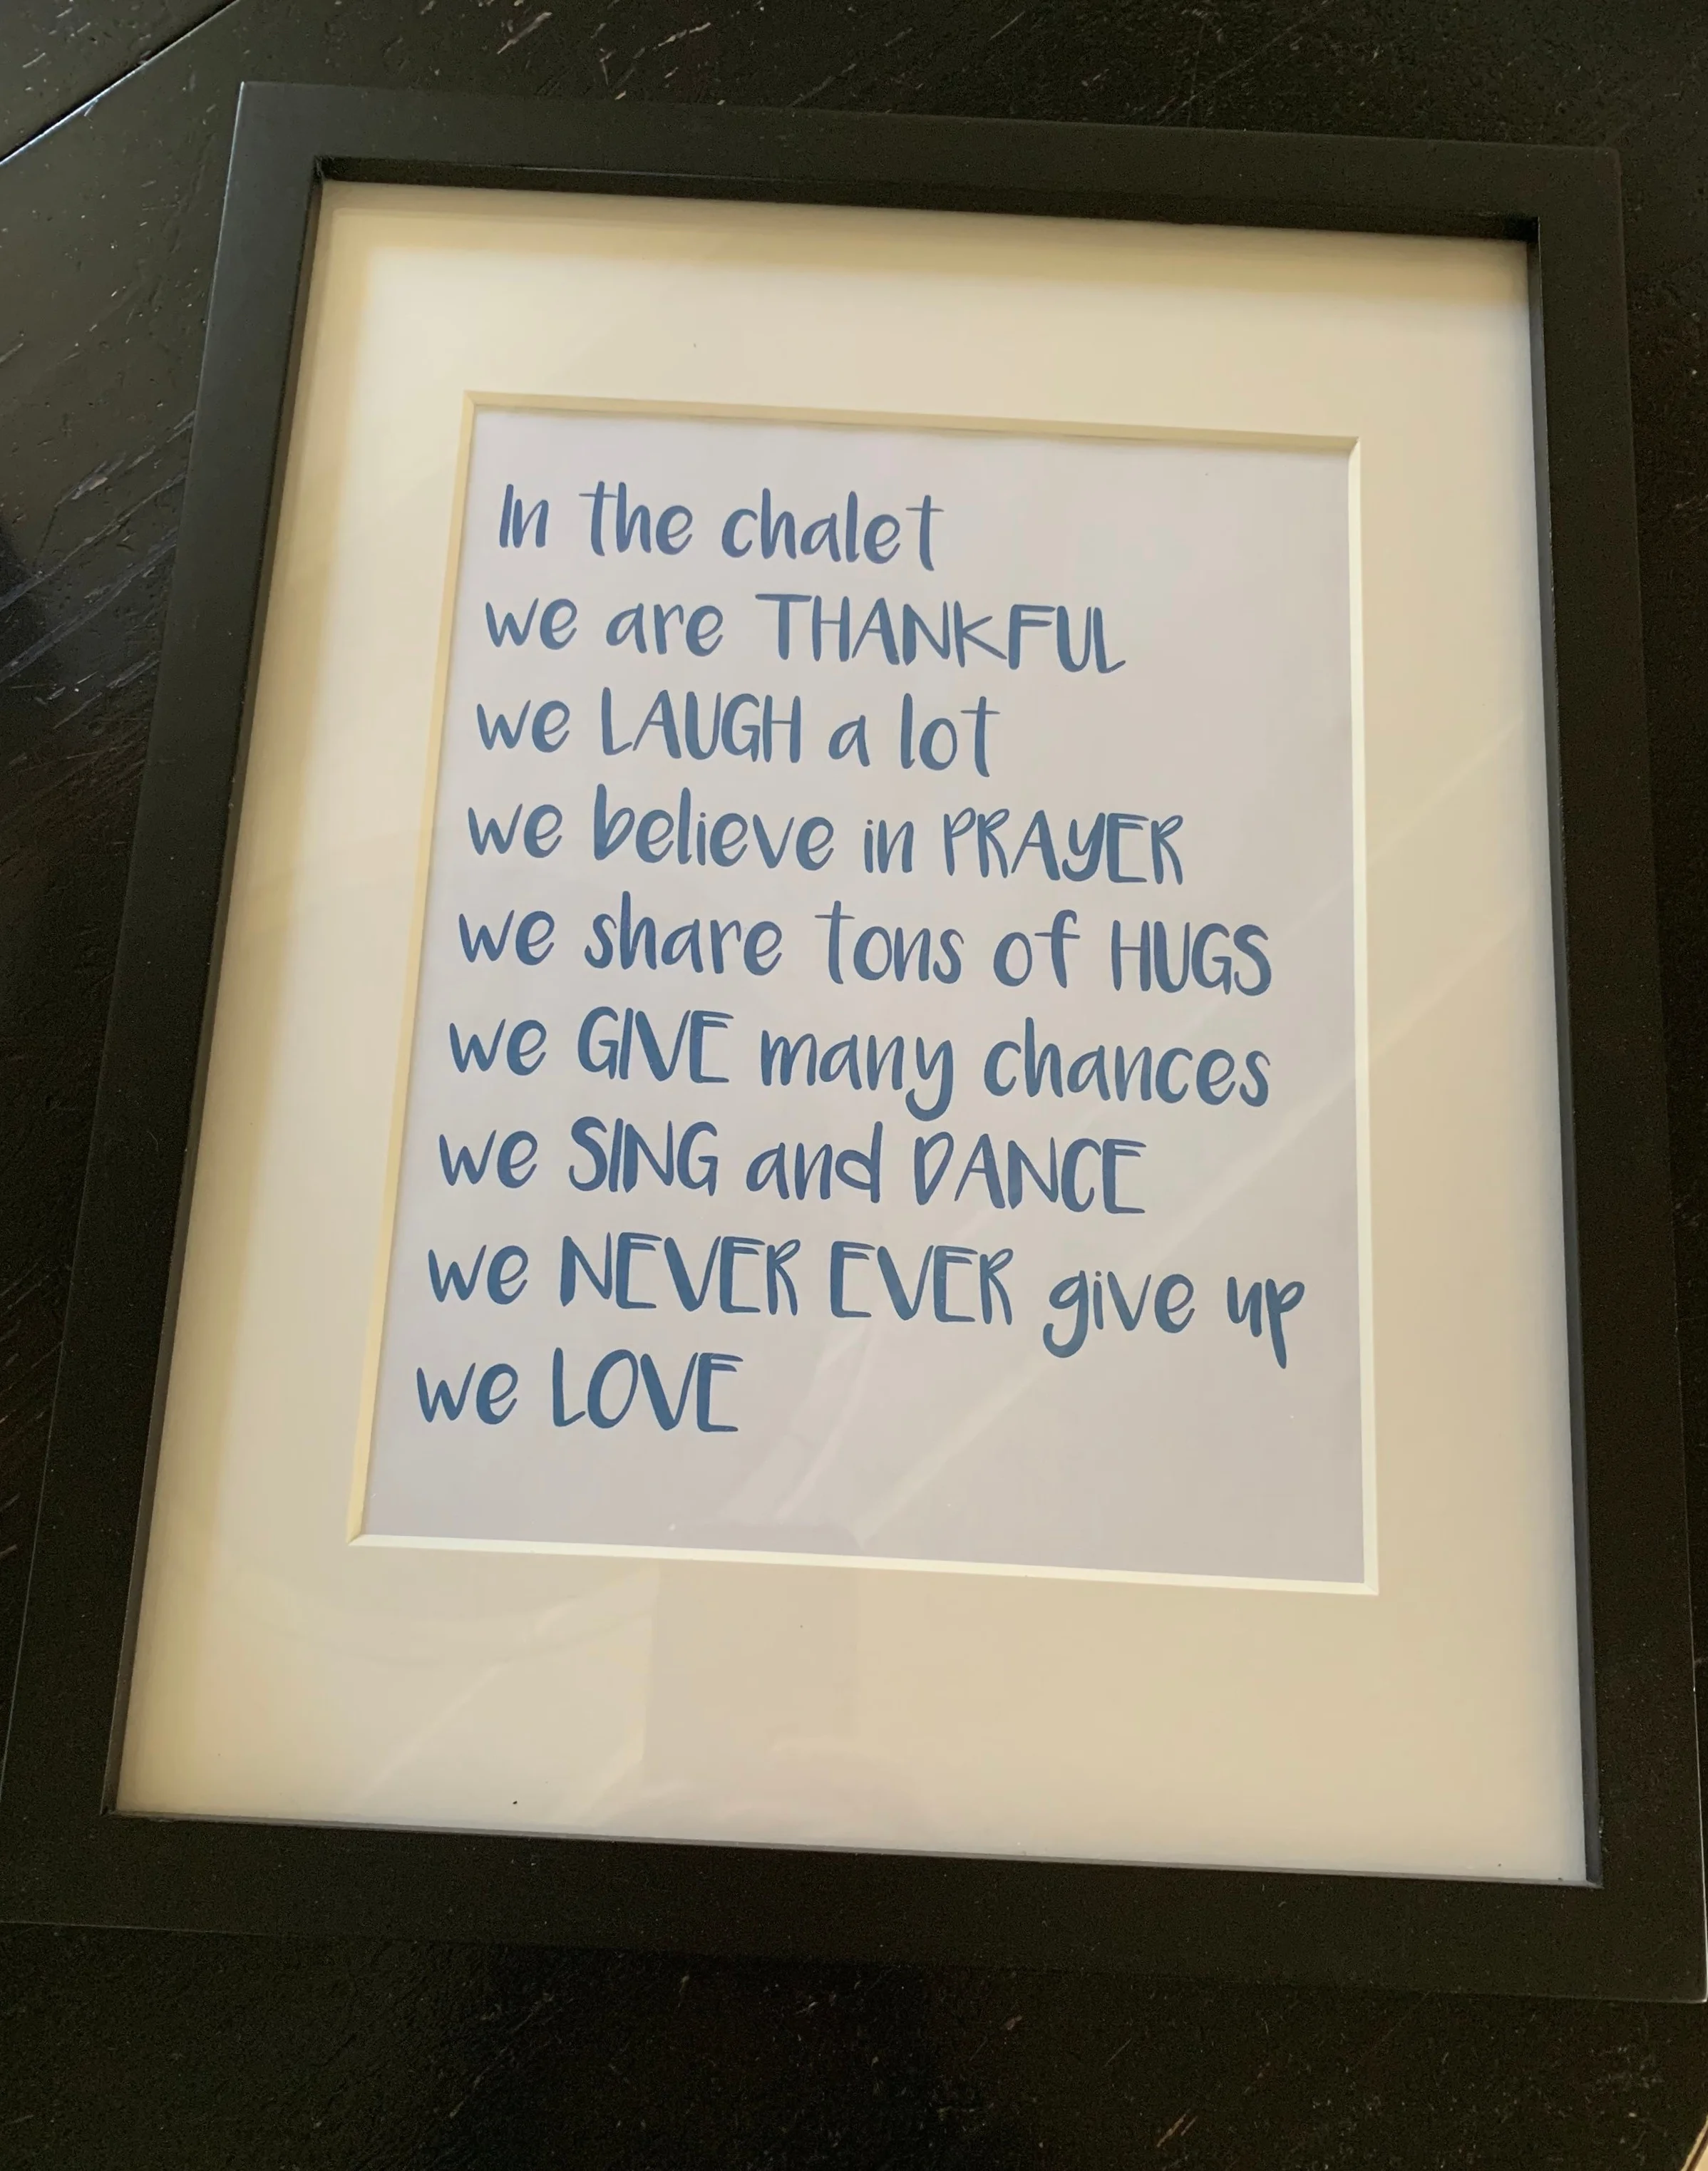 In the chalet
we are THANKFUL
we LAUGH a lot
we believe in PRAYER
we share tons of HUGS
we GIVE many chances
we SING and DANCE
we NEVER EVER give up
we LOVE